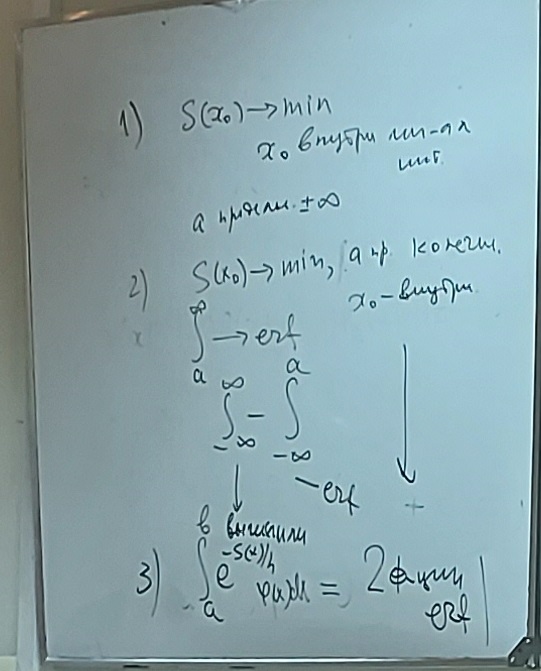 1) S(x₀) → min
x₀ внутри
инт.
а предел. ±∞
2) S(x₀) → min, а пр. конечн.
x₀ – внутри
∫ₐ^∞ → erf
∫₋∞^∞ – ∫₋∞^a
– erf
вычислили
3) ∫ₐ^в e^(-S(x)/h) φ(x)dx = 2 функции
erf